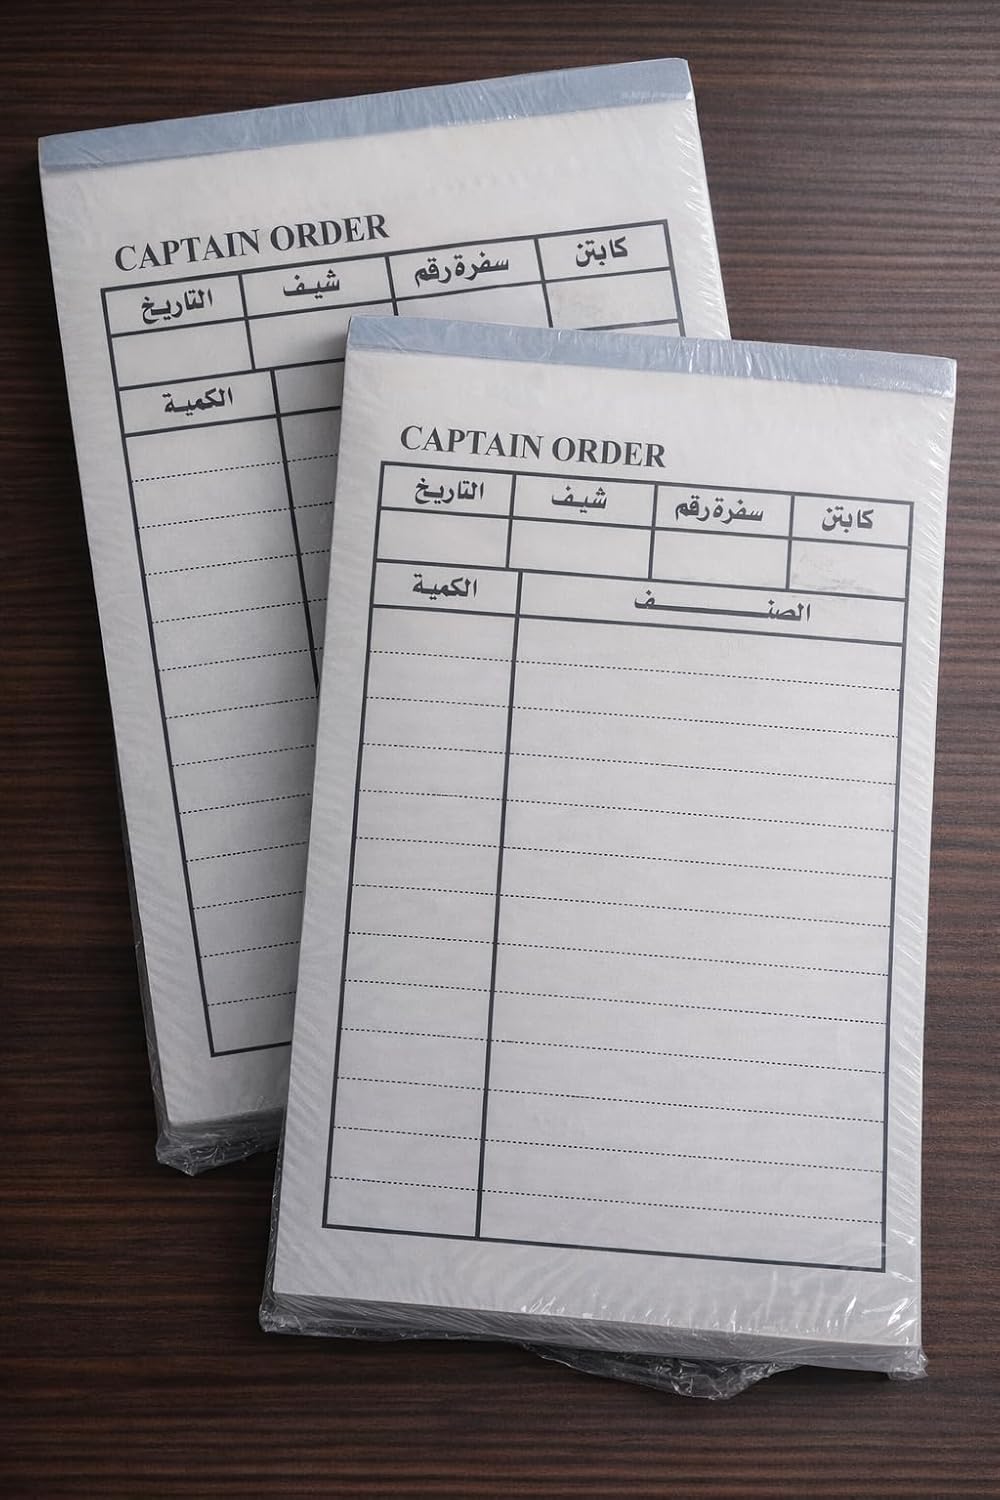 CAPTAIN ORDER
كابتن سفرة رقم شيف التاريخ
الكمية
CAPTAIN ORDER
كابتن سفرة رقم شيف التاريخ
الصنف الكمية